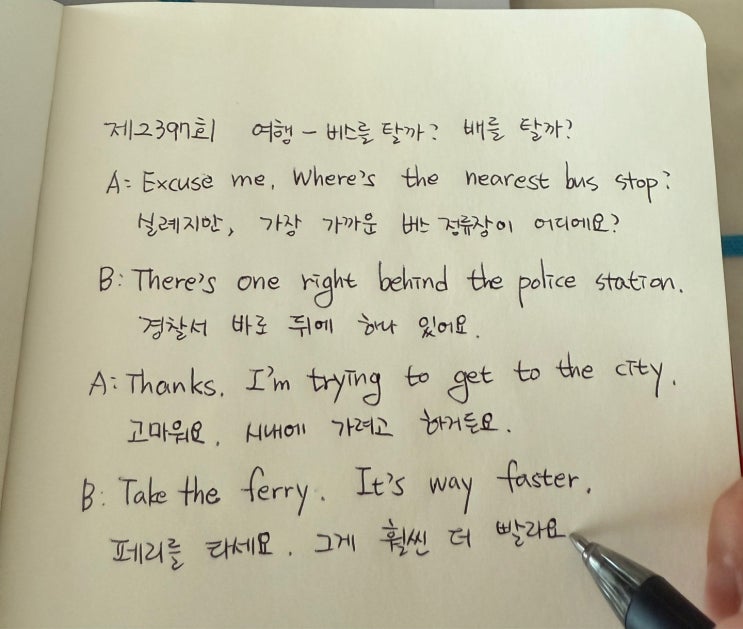 제2397회 여행 - 버스를 탈까? 배를 탈까?
A: Excuse me, Where's the nearest bus stop?
실례지만, 가장 가까운 버스 정류장이 어디에요?
B: There's one right behind the police station.
경찰서 바로 뒤에 하나 있어요.
A: Thanks. I'm trying to get to the city.
고마워요. 시내에 가려고 하거든요.
B: Take the ferry. It's way faster.
페리를 타세요. 그게 훨씬 더 빨라요